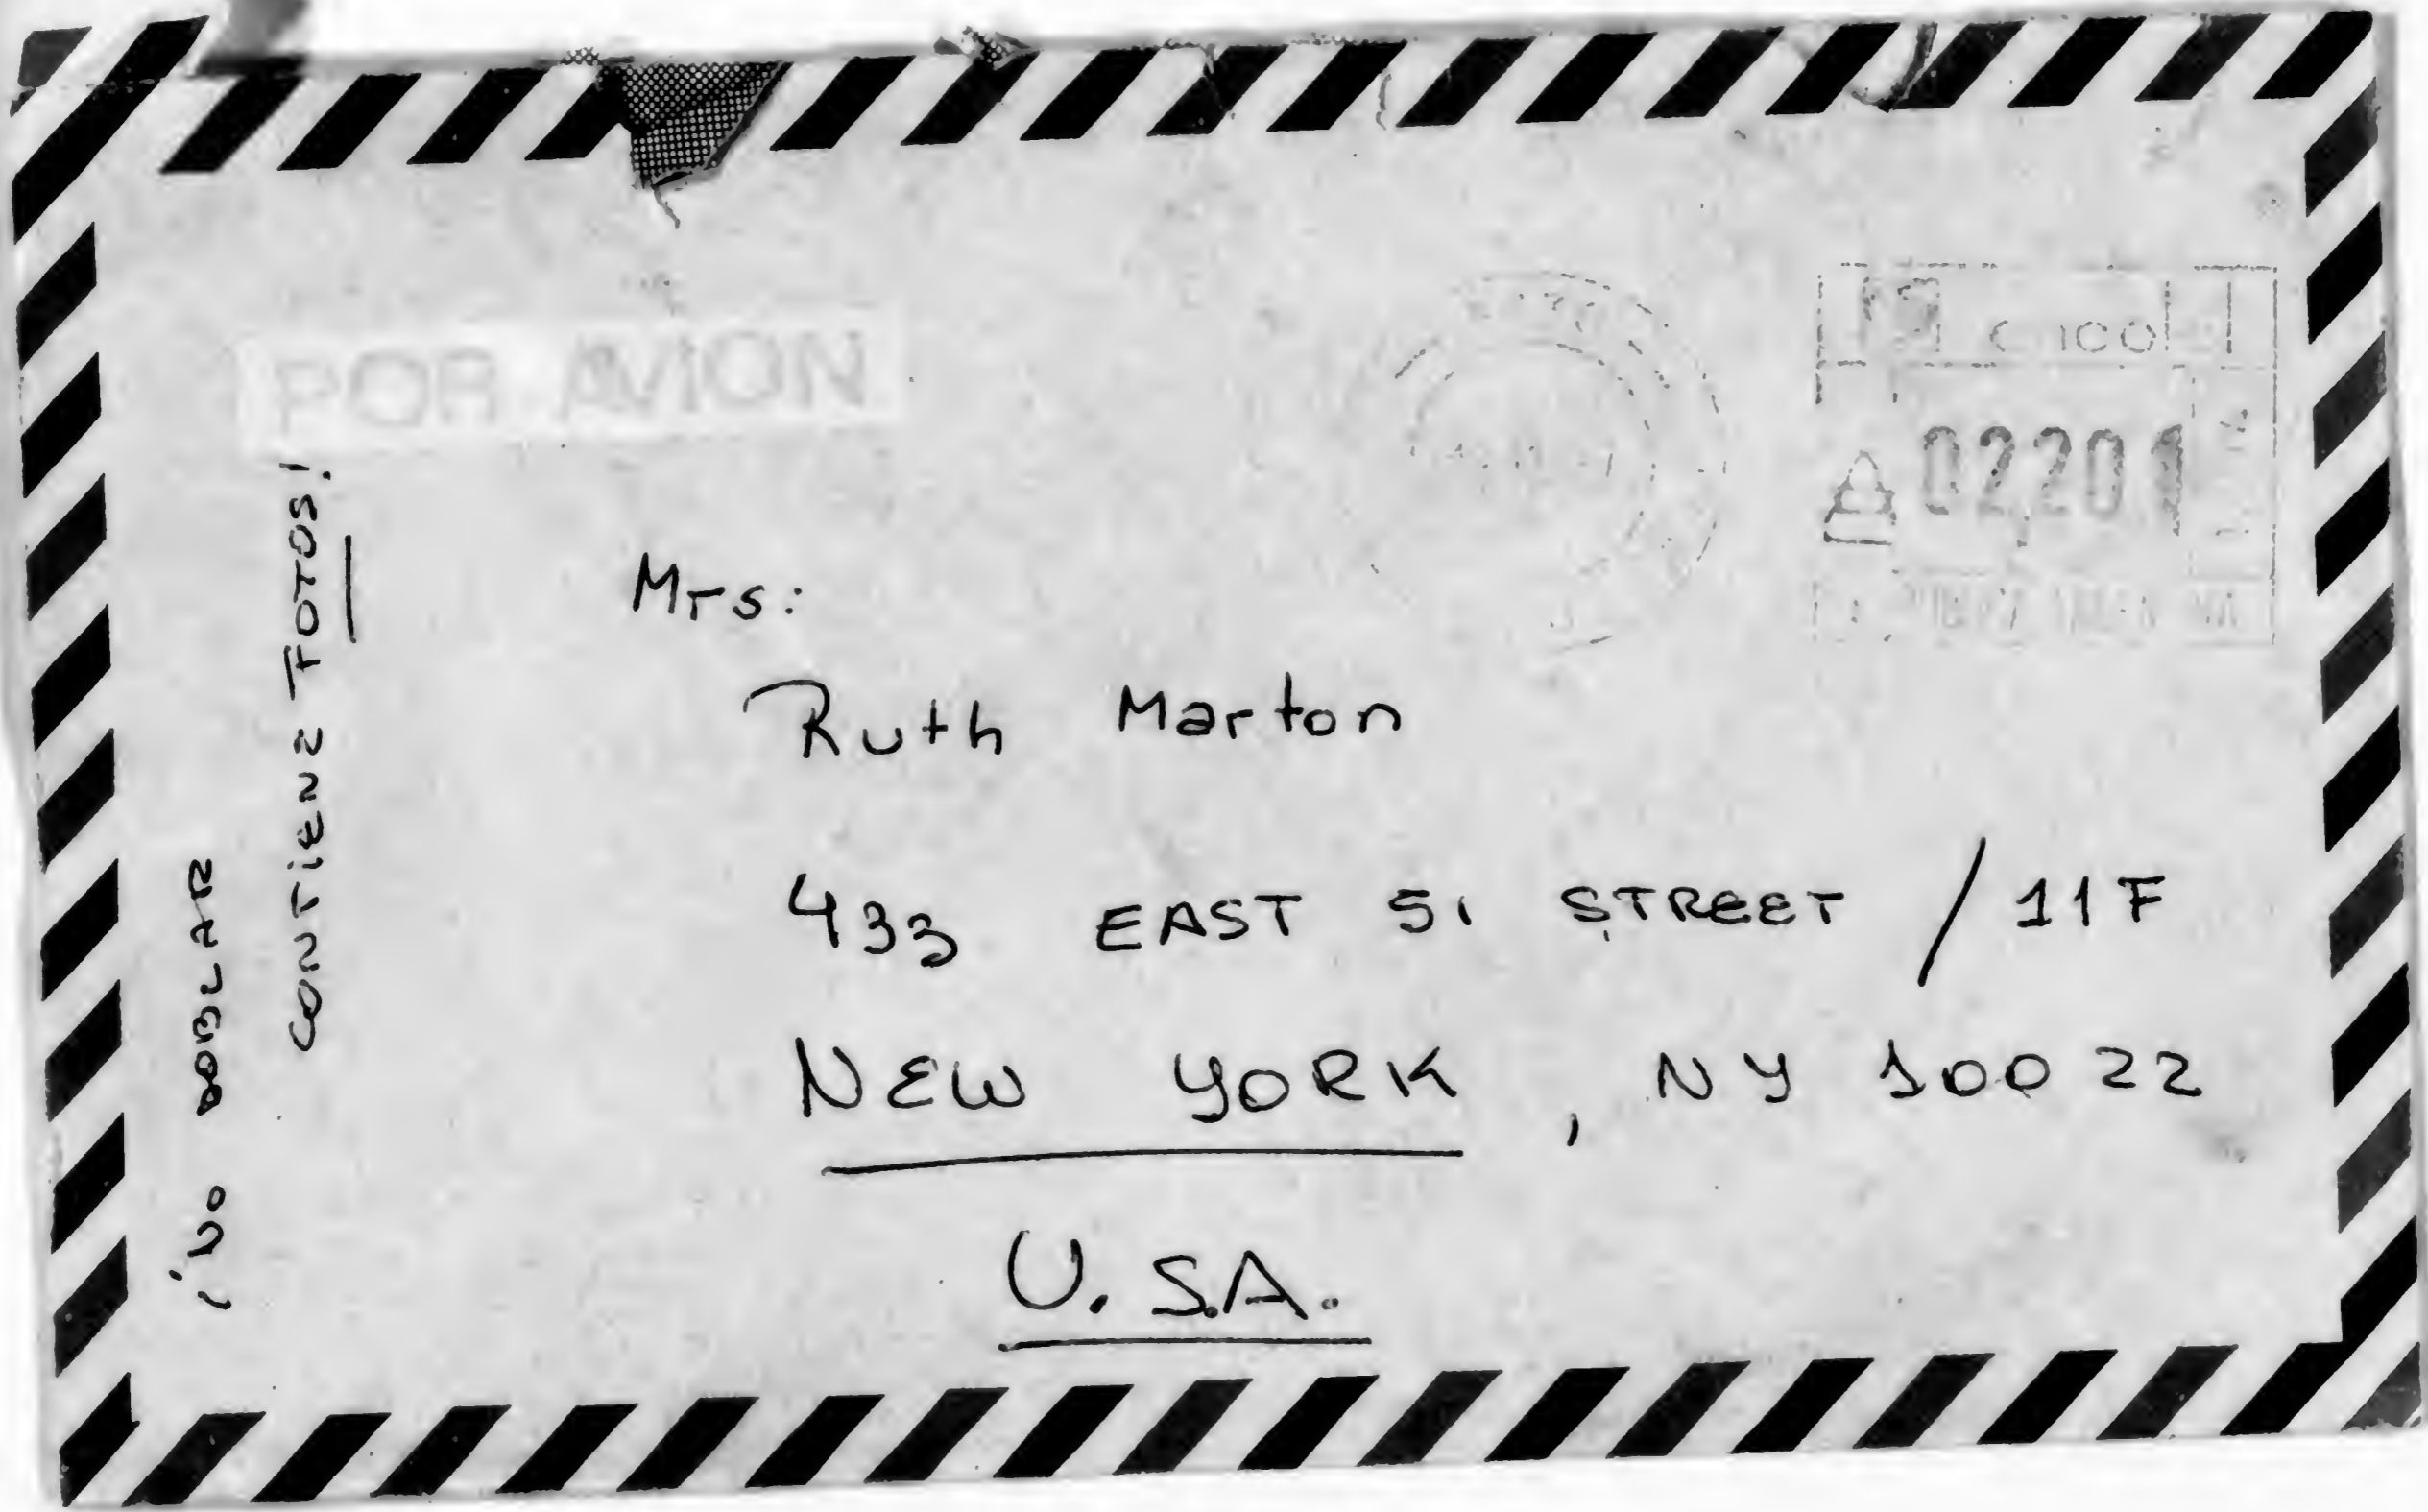 POR AVION
02201
¡NO DOBLAR
CONTIENE FOTOS!
Mrs:
Ruth Marton
433 EAST 51 STREET / 11F
NEW YORK, NY 10022
U.S.A.